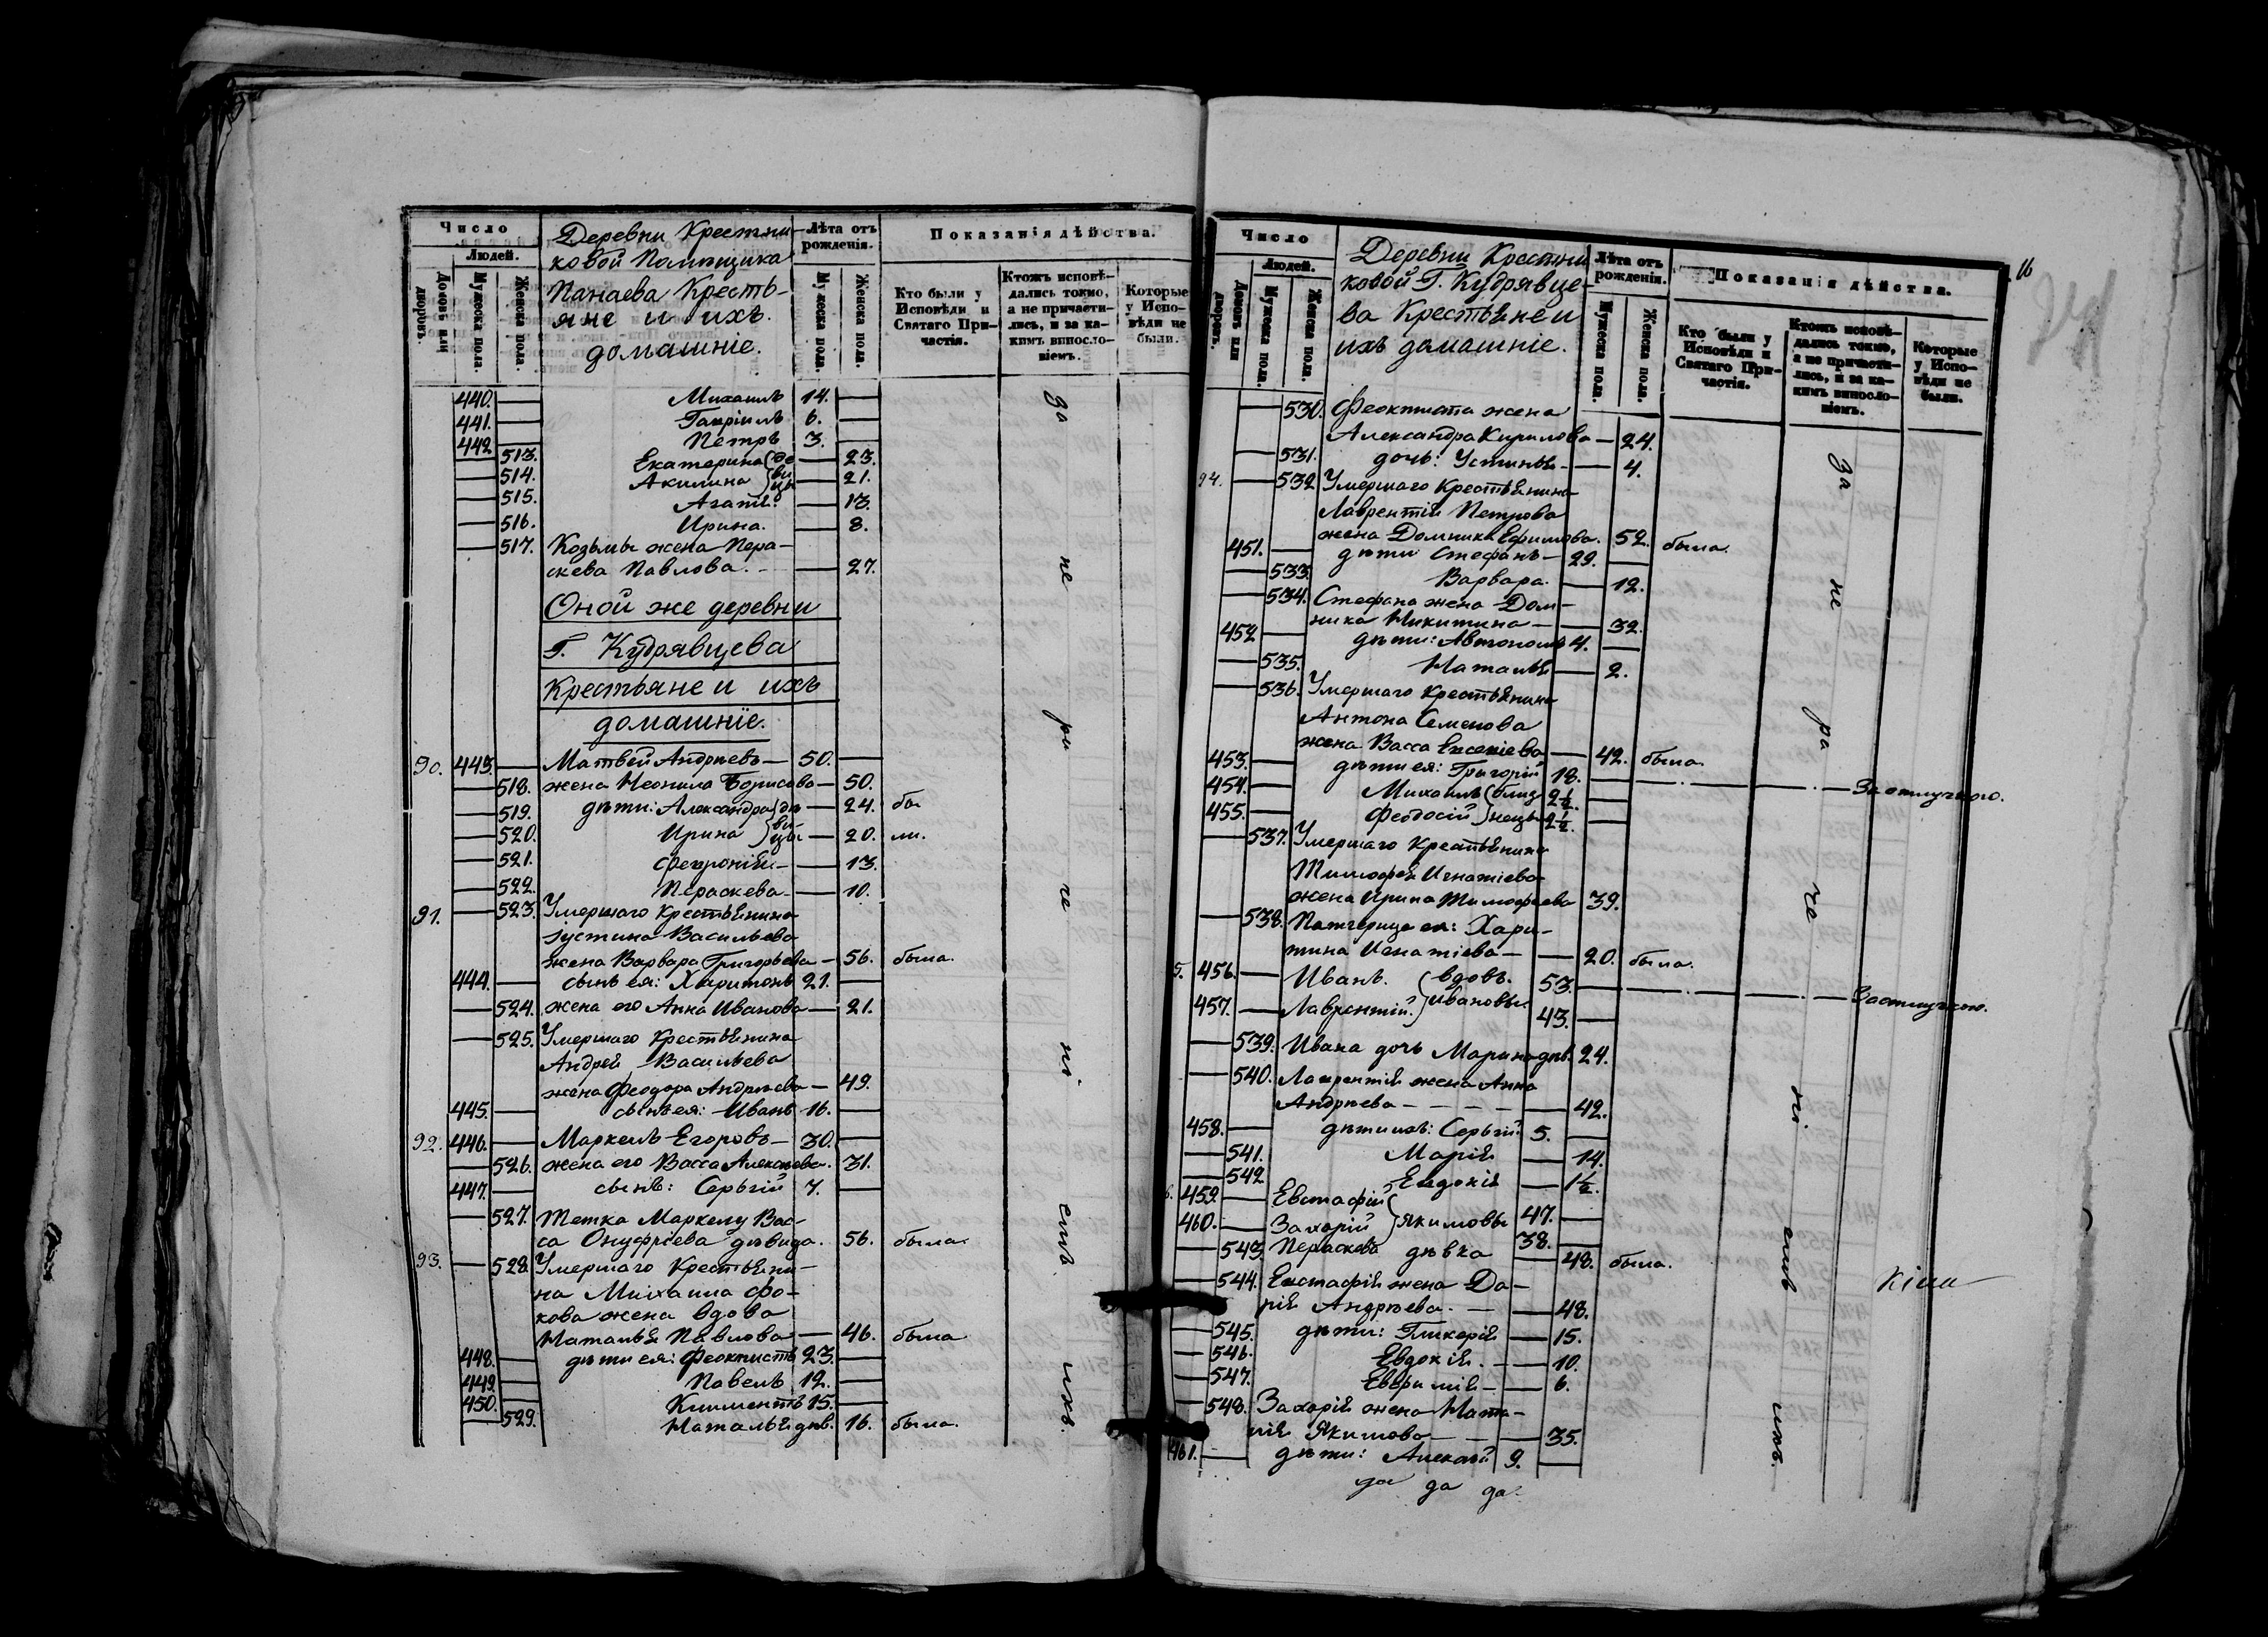 Число
Людей.
Домовъ или дворовъ.
Мужеска пола.
Женска пола.
Деревни Крестни-
ковой Помѣщика
Панаева Кресть-
яне и ихъ
домашніе.
Лѣта отъ рожденія.
Мужеска пола.
Женска пола.
Показанія дѣйства.
Кто были у Исповѣди и Святаго При-частія.
Ктожъ исповѣ-дались токмо, а не причасти-лись, и за ка-кимъ винosло-віемъ.
Которые у Испо-вѣди не были.
440. — Михаилъ 14. —
441. — Гавріилъ 6. —
442 — Петръ 3. —
— 513. Екатерина (дѣ — 23.
— 514. Акилина }вицы — 21.
— 515. Агатія. — 13.
— 516. Ирина. — 8.
— 517. Козьмы жена Пера-
скева Павлова. — 27.
Оной же деревни
Г. Кудрявцева
Крестьяне и ихъ
домашніе.
90. 443. — Матвей Андрѣевъ — 50. —
— 518. жена Неонила Борисова — 50.
— 519. дѣти: Александра }дѣ — 24. бы
— 520. Ирина }вицы — 20. ли.
— 521. Февронія — 13.
— 522. Пераскева — 10.
91. — 523. Умершаго Крестьянина
Іустина Васильева
жена Варвара Григорьева — 56. была.
444. — сынъ ея: Харитонъ 21. —
— 524. жена его Анна Иванова — 21.
— 525. Умершаго Крестьянина
Андрея Васильева
жена Феодора Андрѣева — 49.
445. — сынъ ея: Иванъ 16. —
92. 446. — Маркелъ Егоровъ — 30. —
— 526. жена его Васса Алексѣева. 31.
447. — сынъ: Сергій 7. —
— 527. Тетка Маркелу Вас-
са Онуфріева дѣвица. 56. была
93. — 528. Умершаго Крестьяни-
на Михаила Фо-
кова жена вдова
Наталья Павлова — 46. была
448. — дѣти ея: Феоктистъ 23. —
449. — Павелъ 12. —
450. — Климентъ 15. —
— 529. Наталья дѣв. 16. была.
за не ра че ні емъ ихъ.
16
Число
Людей.
Домовъ или дворовъ.
Мужеска пола.
Женска пола.
Деревни Крестни
ковой Г. Кудрявце-
ва Крестьяне и
ихъ домашніе.
Лѣта отъ рожденія.
Мужеска пола.
Женска пола.
Показанія дѣйства.
Кто были у Исповѣди и Святаго При-частія.
Ктожъ исповѣ-дались токмо, а не причасти-лись, и за ка-кимъ винosло-віемъ.
Которые у Испо-вѣди не были.
— 530. Феоктиста жена
Александра Кирилова — 24.
— 531. дочь: Устинья — 4.
94. — 532 Умершаго Крестьянина
Лаврентія Петрова
жена Домника Ефимова. 52. была.
451. — дѣти Стефанъ — 29. —
— 533. Варвара. — 12.
— 534. Стефана жена Дом-
ника Никитина — 32.
452 — дѣти: Автономъ 4. —
— 535. Наталья — 2.
— 536. Умершаго Крестьянина
Антона Семенова
жена Васса Евсевіева — 42. была.
453. — дѣти ея: Григорій 18. — За отлучкою.
454. — Михаилъ (близ 2½. —
455. — Феодосій }нецы 2½. —
— 537. Умершаго Крестьянина
Тимофея Игнатіева
жена Ирина Тимофеева 39.
— 538. Патчерица ея: Хари-
тина Игнатіева — 20. была.
5. 456. — Иванъ. (вдовъ. 53. — За отлучкою.
457. — Лаврентій. }Ивановы. 43. —
— 539. Ивана дочь Марина дѣв. 24.
— 540. Лаврентія жена Анна
Андрѣева — — 42.
458. — дѣти ихъ: Сергій 5. —
— 541. Марія — 14.
— 542 Евдокія — 1½.
6. 459. — Евстафій 47. —
460. — Захарій }Якимовы 38. —
— 543. Пераскева дѣвка — 48. была.
— 544. Евстафія жена Да-
рія Андрѣева. — 48.
— 545. дѣти: Гликерія — 15.
— 546. Евдокія. — 10.
— 547. Евфимія — 6.
— 548. Захарія жена Ната-
лія Якимова — 35.
461. — дѣти: Алексѣй 9. —
за не ра че ні емъ ихъ.
да да да